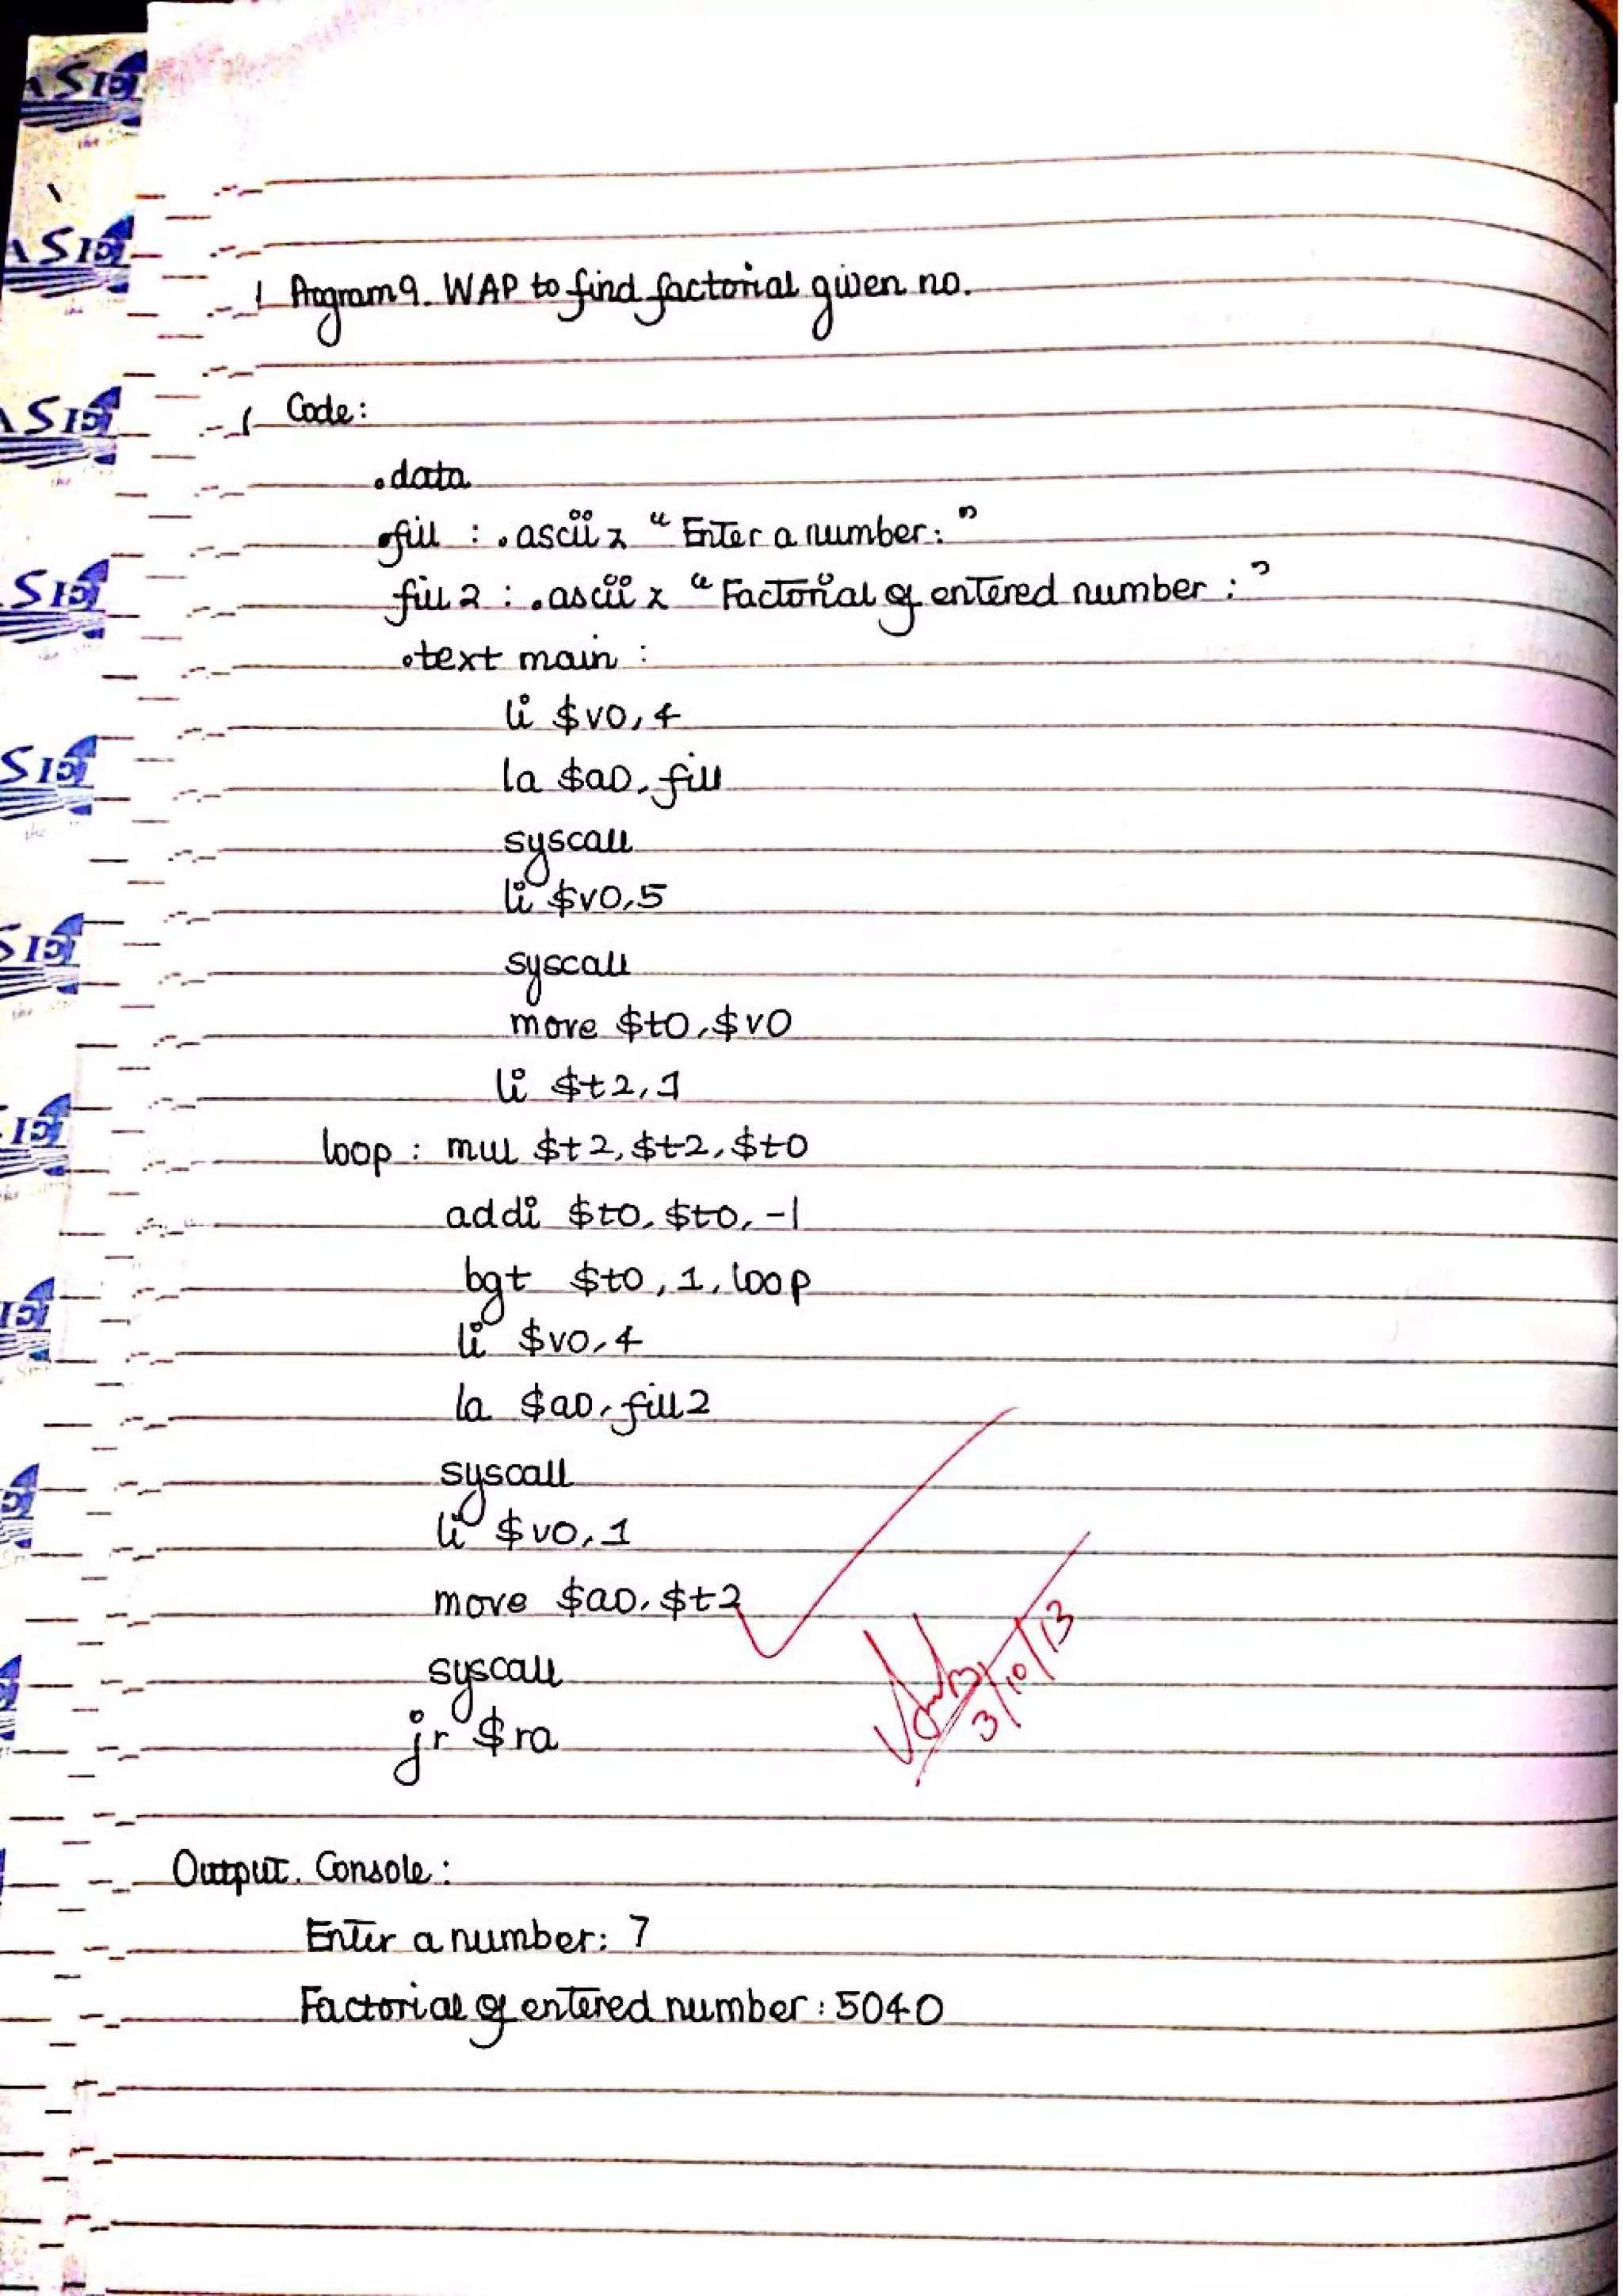 Program 9. WAP to find factorial given no.
Code:
.data
fill : .asciiz "Enter a number: "
fill 2 : .asciix "Factorial of entered number : "
.text main :
li $v0, 4
la $a0, fill
syscall
li $v0, 5
syscall
move $t0, $v0
li $t2, 1
loop : mul $t2, $t2, $t0
addi $t0, $t0, -1
bgt $t0, 1, loop
li $v0, 4
la $a0, fill2
syscall
li $v0, 1
move $a0, $t2
syscall
jr $ra
3/10/13
Output. Console :
Enter a number: 7
Factorial of entered number : 5040